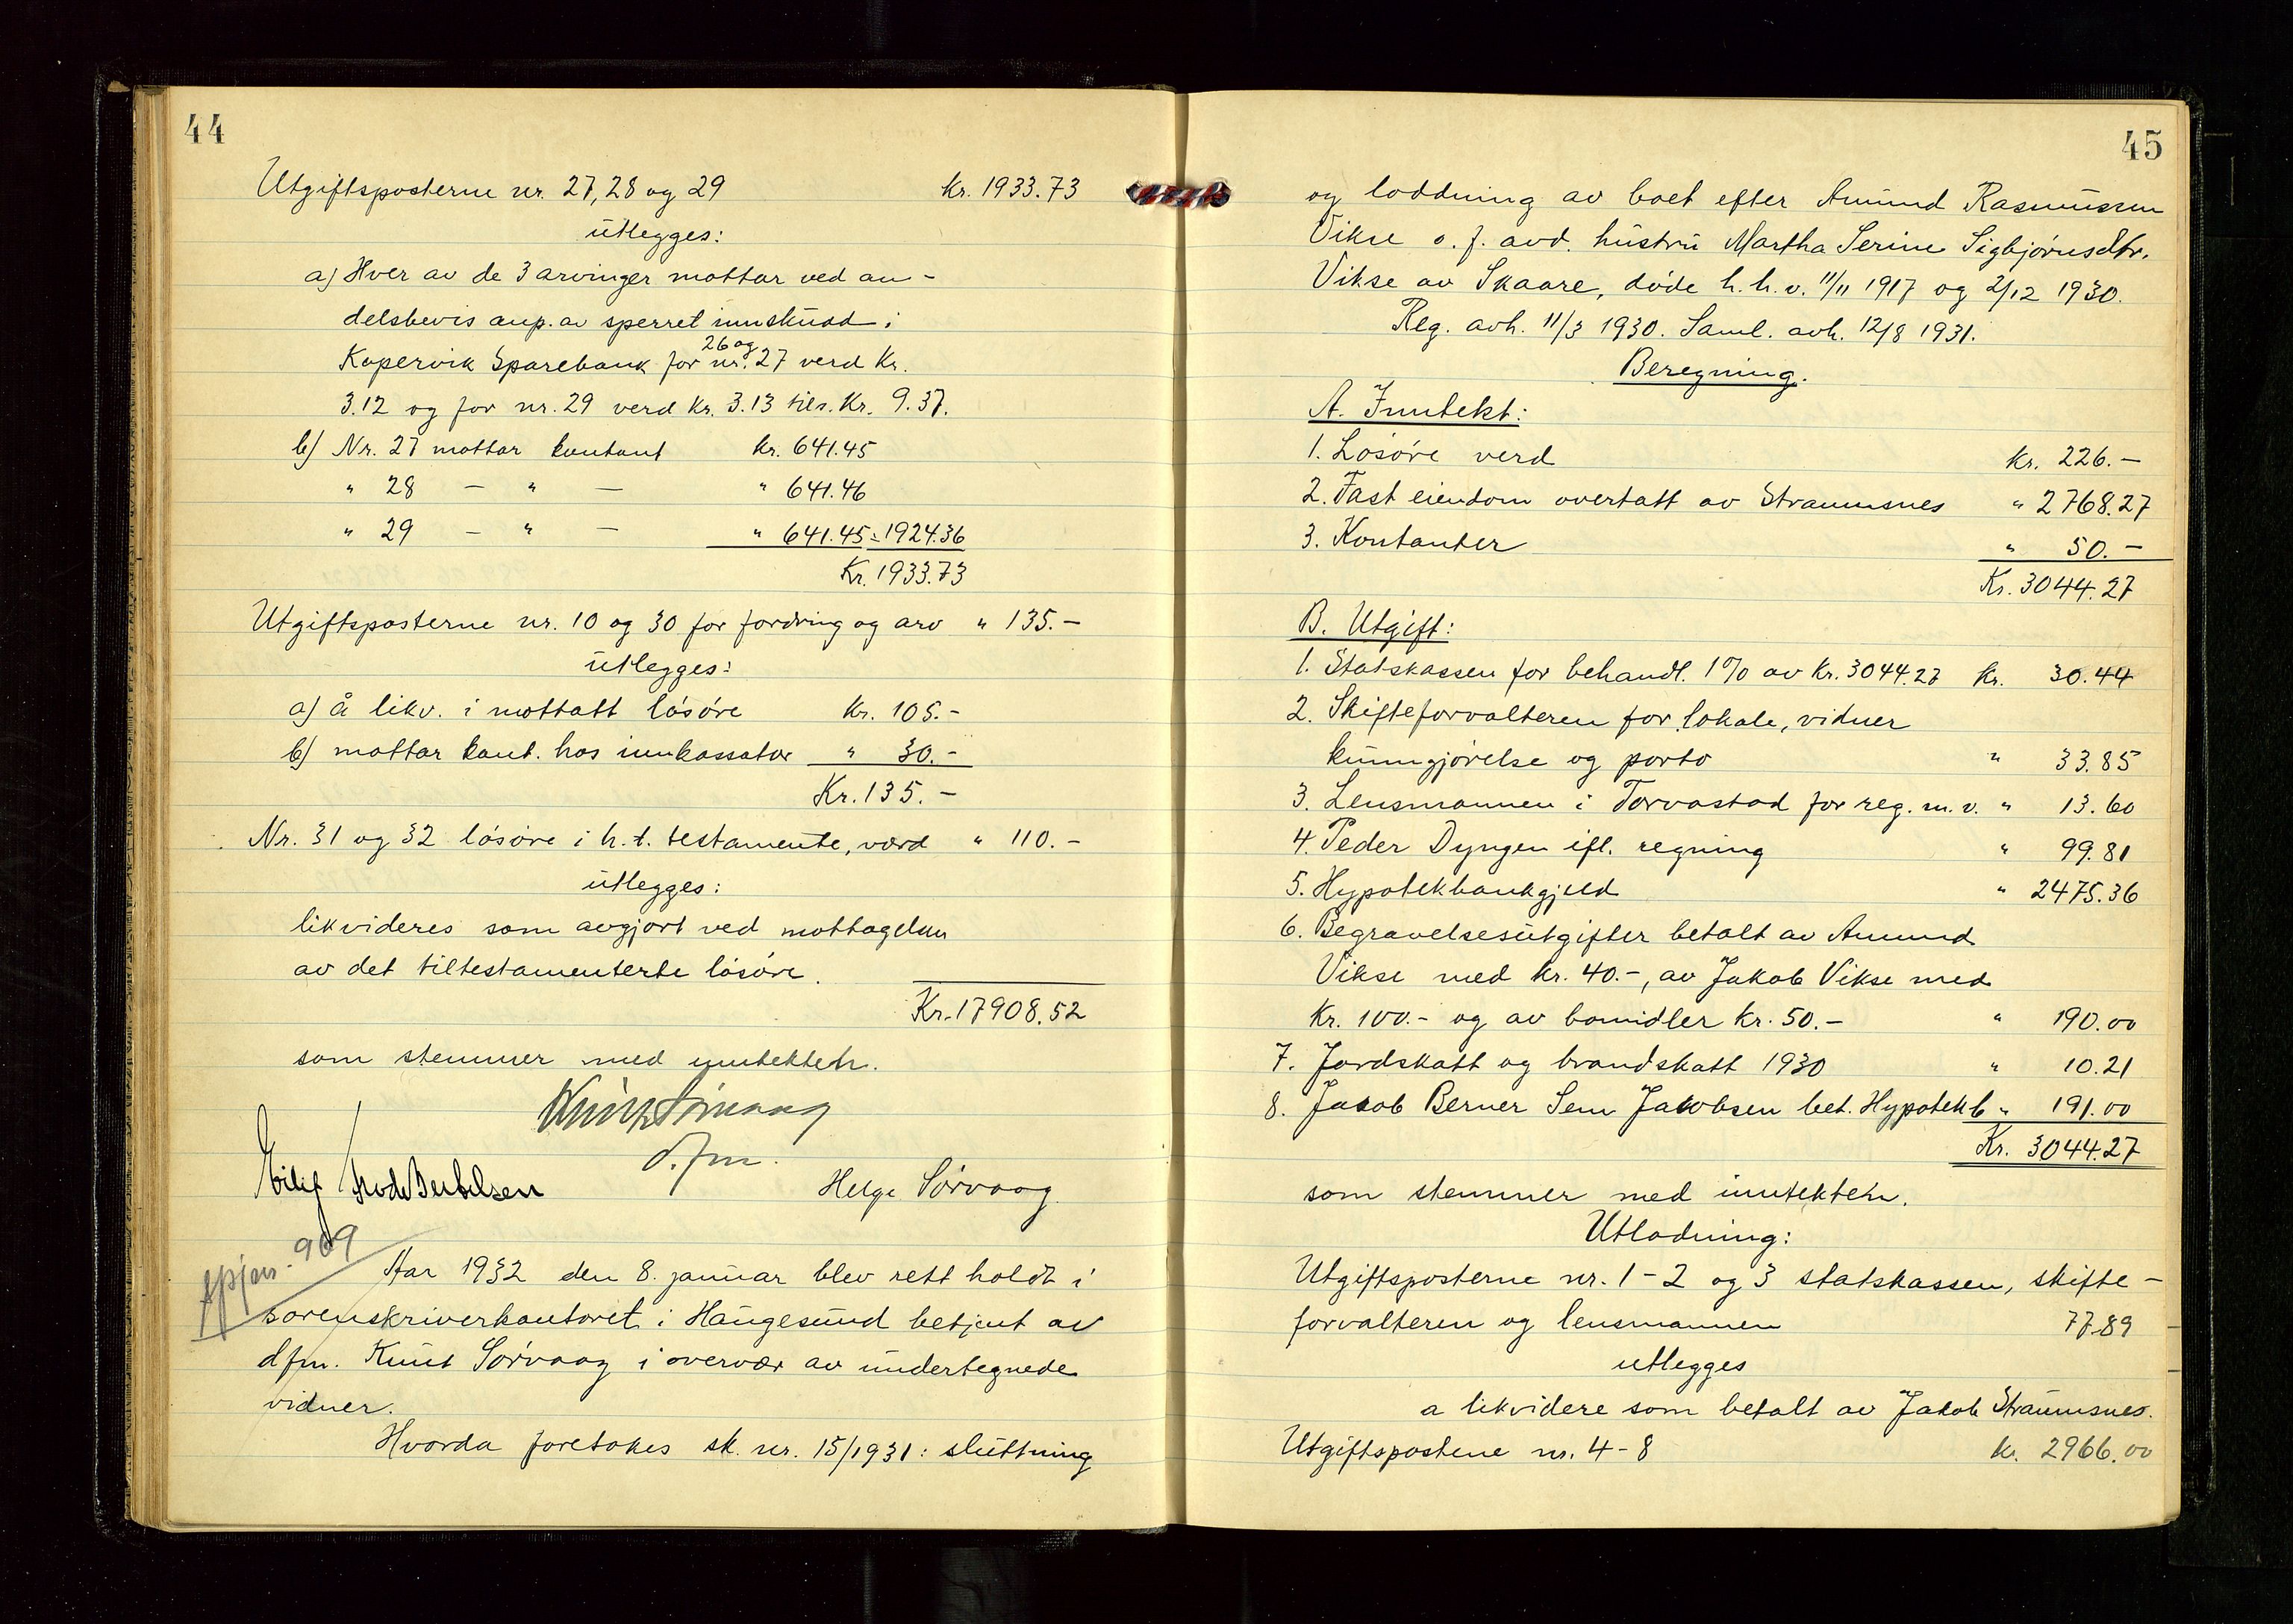 44
Utgiftsposterne nr. 27, 28 og 29 kr. 1933.73
utlegges:
a) Hver av de 3 arvinger mottar ved an-
delsbevis anp. av sperret innskudd i
Kopervik Sparebank for nr. 26 og 27 verd Kr.
3.12 og for nr. 29 verd Kr. 3.13 tils. Kr. 9.37.
b) Nr. 27 mottar kontant kr. 641.45
" 28 — " — " 641.46
" 29 — " — " 641.45 = 1924.36
Kr. 1933.73
Utgiftsposterne nr. 10 og 30 for fordring og arv " 135.-
utlegges:
a) å likv. i mottatt løsøre kr. 105.-
b) mottar kont. hos innkassator " 30.-
Kr. 135.-
Nr. 31 og 32 løsøre i h.t. testamente, værd " 110.-
utlegges:
likvideres som avgjort ved mottagelsen
av det tiltestamenterte løsøre.
Kr. 17908.52
som stemmer med inntekten.
Knut Sørvaag
d.fm.
Eilif Helge Sørvaag.
969
Aar 1932 den 8. januar blev rett holdt i
sorenskriverkontoret i Haugesund betjent av
dfm. Knut Sørvaag i overvær av undertegnede
vidner.
Hvorda foretokes sk. nr. 15/1931: sluttning
45
og loddning av boet efter Amund Rasmussen
Vikse o. f. avd. hustru Martha Serine Sigbjørnsdtr.
Vikse av Skaare, døde h.h.v. 11/11 1917 og 2/12 1930.
Reg. avh. 11/3 1930. Saml. avh. 12/8 1931.
Beregning.
A. Inntekt:
1. Løsøre verd kr. 226.-
2. Fast eiendom overtatt av Straumsnes " 2768.27
3. Kontanter " 50.-
Kr. 3044.27
B. Utgift:
1. Statskassen for behandl. 1% av Kr. 3044.27 Kr. 30.44
2. Skifteforvalteren for lokale, vidner
kunngjørelse og porto " 33.85
3. Lensmannen i Torvastad for reg. m. v. " 13.60
4. Peder Dyngen ifl. regning " 99.81
5. Hypotekbankgjeld " 2475.36
6. Begravelsesutgifter betalt av Amund
Vikse med kr. 40.-, av Jakob Vikse med
Kr. 100.- og av bomidler kr. 50.- " 190.00
7. Jordskatt og brandskatt 1930 " 10.21
8. Jakob Berner Sem Jakobsen bet. Hypotekb " 191.00
Kr. 3044.27
som stemmer med inntekten.
Utlodning:
Utgiftsposterne nr. 1-2 og 3 statskassen, skifte-
forvalteren og lensmannen 77.89
utlegges
a likvidere som betalt av Jakob Straumsnes.
Utgiftspostene nr. 4-8 kr. 2966.00